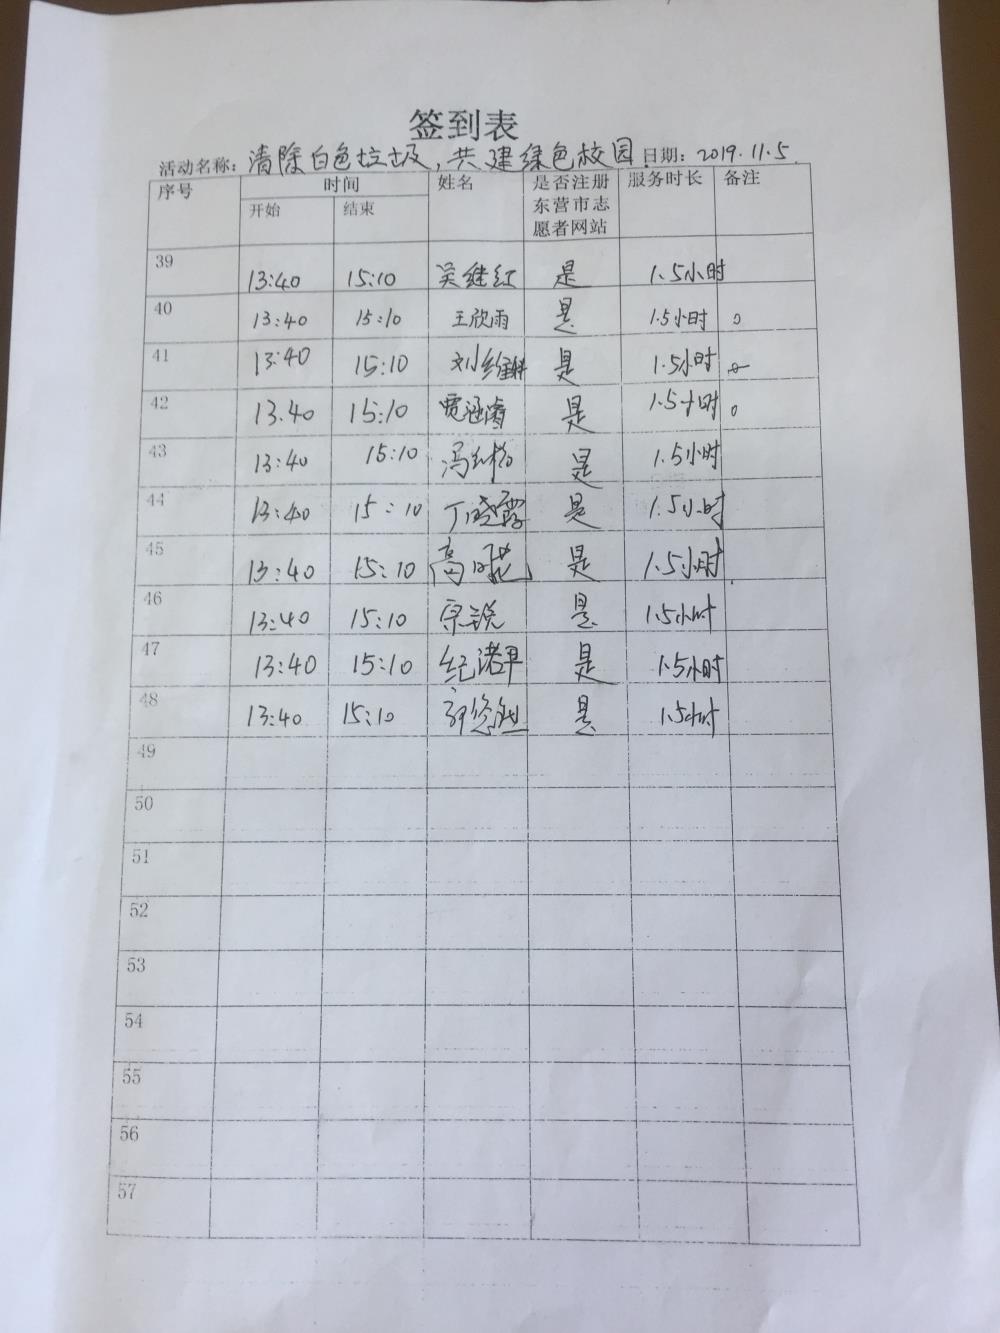 签到表
活动名称：清除白色垃圾，共建绿色校园 日期：2019.11.5
序号 时间 姓名 是否注册东营市志愿者网站 服务时长 备注
开始 结束
39 13:40 15:10 吴继红 是 1.5小时
40 13:40 15:10 王欣雨 是 1.5小时
41 13:40 15:10 刘 是 1.5小时
42 13:40 15:10 贾涵睿 是 1.5小时
43 13:40 15:10 冯 是 1.5小时
44 13:40 15:10 丁晓霞 是 1.5小时
45 13:40 15:10 高 是 1.5小时
46 13:40 15:10 宗锐 是 1.5小时
47 13:40 15:10 纪诺早 是 1.5小时
48 13:40 15:10 是 1.5小时
49
50
51
52
53
54
55
56
57